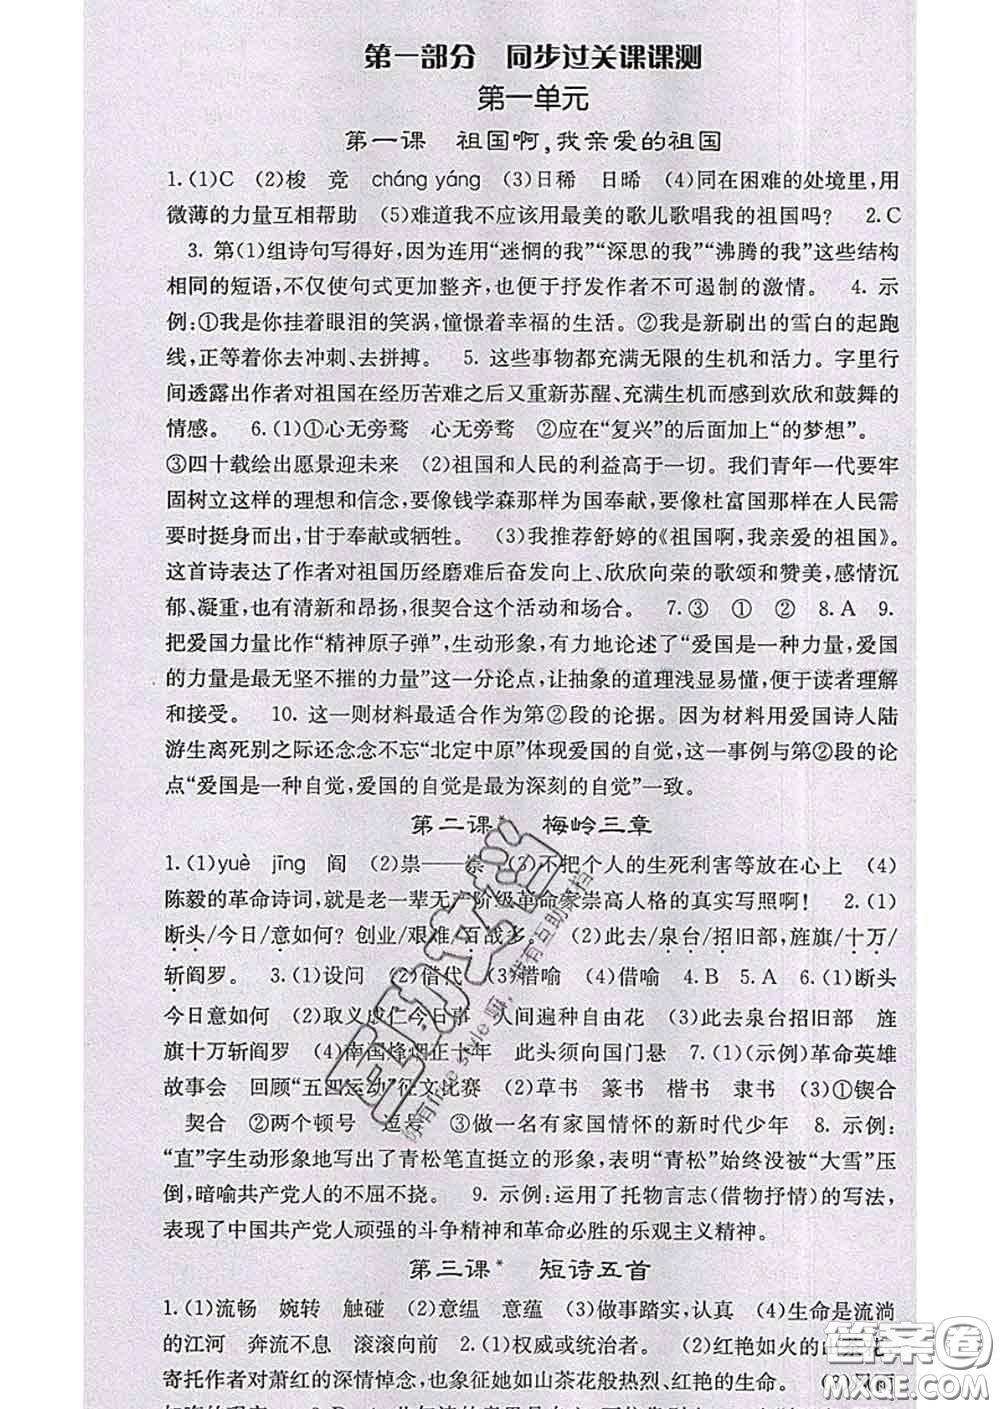 第一部分　同步过关课课测
第一单元
第一课　祖国啊,我亲爱的祖国
1.(1)C　(2)梭　竞　cháng yáng　(3)日稀　日晞　(4)同在困难的处境里,用
微薄的力量互相帮助　(5)难道我不应该用最美的歌儿歌唱我的祖国吗?　2.C
3. 第(1)组诗句写得好,因为连用“迷惘的我”“深思的我”“沸腾的我”这些结构
相同的短语,不仅使句式更加整齐,也便于抒发作者不可遏制的激情。　4. 示
例:①我是你挂着眼泪的笑涡,憧憬着幸福的生活。②我是新刷出的雪白的起跑
线,正等着你去冲刺、去拼搏。　5. 这些事物都充满无限的生机和活力。字里行
间透露出作者对祖国在经历苦难之后又重新苏醒、充满生机而感到欢欣和鼓舞的
情感。　6.(1)①心无旁骛　心无旁骛　②应在“复兴”的后面加上“的梦想”。
③四十载绘出愿景迎未来　(2)祖国和人民的利益高于一切。我们青年一代要牢
固树立这样的理想和信念,要像钱学森那样为国奉献,要像杜富国那样在人民需
要时挺身而出,甘于奉献或牺牲。　(3)我推荐舒婷的《祖国啊,我亲爱的祖国》。
这首诗表达了作者对祖国历经磨难后奋发向上、欣欣向荣的歌颂和赞美,感情沉
郁、凝重,也有清新和昂扬,很契合这个活动和场合。　7.③　①　②　8.A　9.
把爱国力量比作“精神原子弹”,生动形象,有力地论述了“爱国是一种力量,爱国
的力量是最无坚不摧的力量”这一分论点,让抽象的道理浅显易懂,便于读者理解
和接受。　10. 这一则材料最适合作为第②段的论据。因为材料用爱国诗人陆
游生离死别之际还念念不忘“北定中原”体现爱国的自觉,这一事例与第②段的论
点“爱国是一种自觉,爱国的自觉是最为深刻的自觉”一致。
第二课*　梅岭三章
1.(1)yuè　jīng　阎　(2)祟——崇　(3)不把个人的生死利害等放在心上　(4)
陈毅的革命诗词,就是老一辈无产阶级革命家崇高人格的真实写照啊!　2.(1)
断头/今日/意如何?创业/艰难/百战多。　(2)此去/泉台/招旧部,旌旗/十万/
斩阎罗。　3.(1)设问　(2)借代　(3)借喻　(4)借喻　4.B　5.A　6.(1)断头
今日意如何　(2)取义成仁今日事　人间遍种自由花　(3)此去泉台招旧部　旌
旗十万斩阎罗　(4)南国烽烟正十年　此头须向国门悬　7.(1)(示例)革命英雄
故事会　回顾“五四运动”征文比赛　(2)草书　篆书　楷书　隶书　(3)①锲合
契合　②两个顿号　逗号　③做一名有家国情怀的新时代少年　8. 示例:
“直”字生动形象地写出了青松笔直挺立的形象,表明“青松”始终没被“大雪”压
倒,暗喻共产党人的不屈不挠。　9. 示例:运用了托物言志(借物抒情)的写法,
表现了中国共产党人顽强的斗争精神和革命必胜的乐观主义精神。
第三课*　短诗五首
1.(1)流畅　婉转　触碰　(2)意缊　意蕴　(3)做事踏实,认真　(4)生命是流淌
的江河　奔流不息　滚滚向前　2.(1)权威或统治者。　(2)红艳如火的山茶花
寄托作者对萧红的深情悼念,也象征她如山茶花般炫丽、红艳的生命。　(3)
答案圈
MXQE.COM